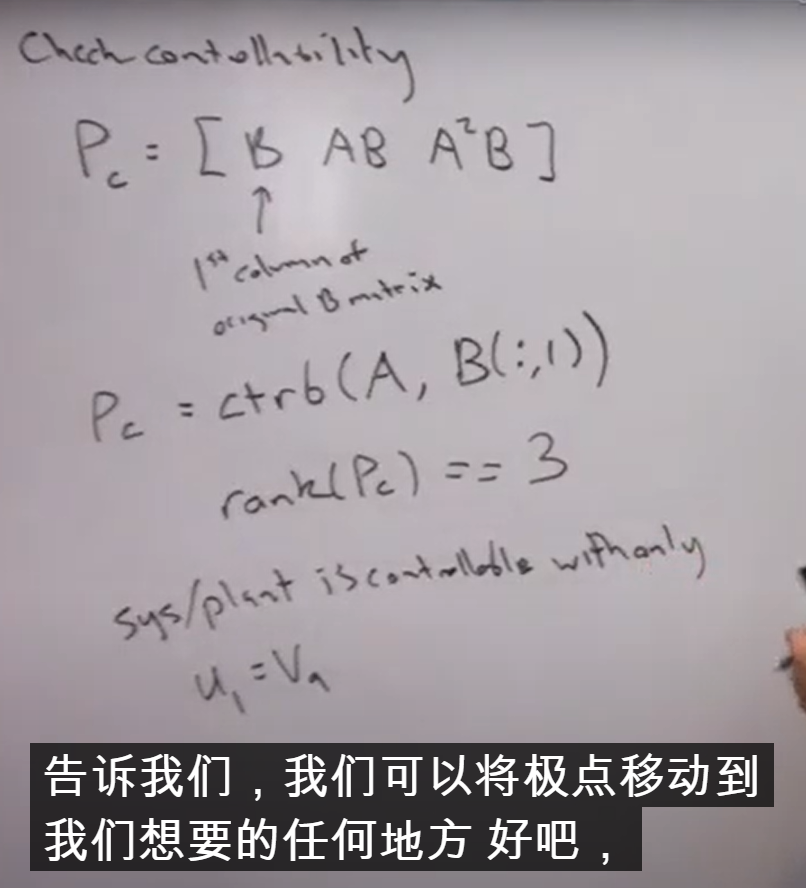 Check controllability
Pc = [ B AB A²B ]
↑
1st column of
original B matrix
Pc = ctrb(A, B(:,1))
rank(Pc) == 3
sys/plant is controllable with only
u₁ = Va
告诉我们，我们可以将极点移动到
我们想要的任何地方 好吧，